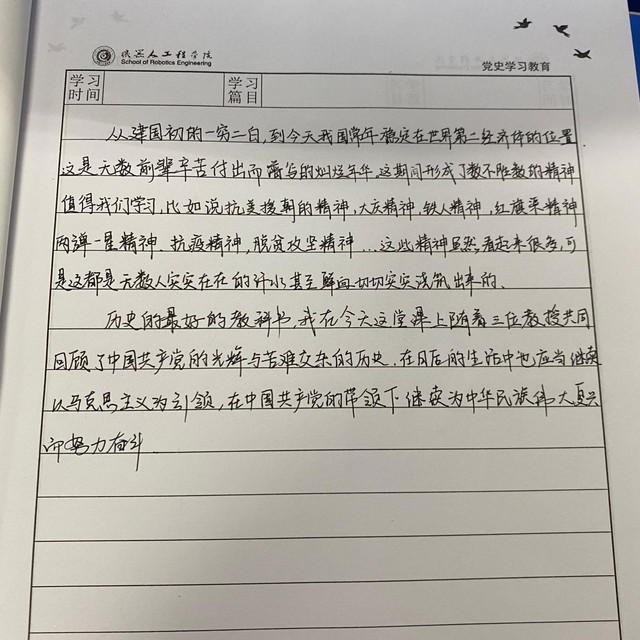 机器人工程学院
School of Robotics Engineering
党史学习教育
学习时间
学习篇目
从建国初的一穷二白,到今天我国常年稳定在世界第二经济体的位置
这是无数前辈辛苦付出而谱写的灿烂年华,这期间形成了数不胜数的精神
值得我们学习,比如说抗美援朝的精神,大庆精神,铁人精神,红旗渠精神
两弹一星精神、抗疫精神,脱贫攻坚精神...这些精神虽然看起来很多,可
是这都是无数人实实在在的汗水甚至鲜血切切实实浇筑出来的。
历史的最好的教科书,我在今天这堂课上随着三位教授共同
回顾了中国共产党的光辉与苦难交杂的历史,在日后的生活中也应当继续
以马克思主义为引领,在中国共产党的带领下继续为中华民族伟大复兴
而努力奋斗